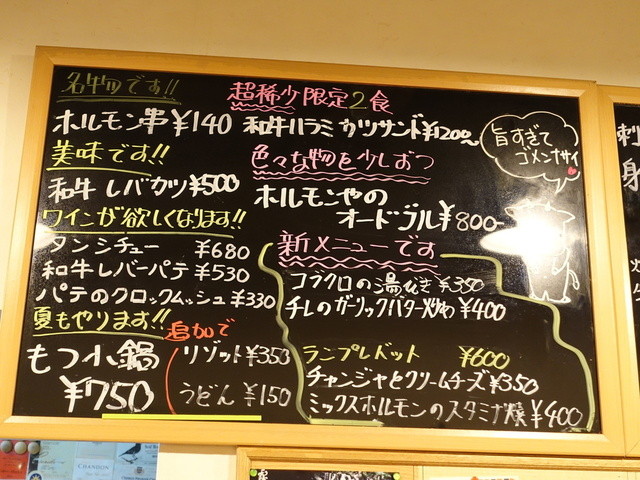 名物です!!
ホルモン串 ¥140
美味です!!
和牛レバカツ ¥500
ワインが欲しくなります!!
タンシチュー ¥680
和牛レバーパテ ¥530
パテのクロックムッシュ ¥330
夏もやります!!
もつ小鍋
¥750
追加で
リゾット ¥350
うどん ¥150
超稀少限定2食
和牛ハラミカツサンド ¥1200~
色々な物を少しずつ
ホルモンやの
オードブル ¥800-
旨すぎて
ゴメンナサイ
新メニューです
コブクロの湯びき ¥350
チレのガーリックバター炒め ¥400
ランプレドット ¥600
チャンジャとクリームチーズ ¥350
ミックスホルモンのスタミナ焼 ¥400
刺
身
CHANDON